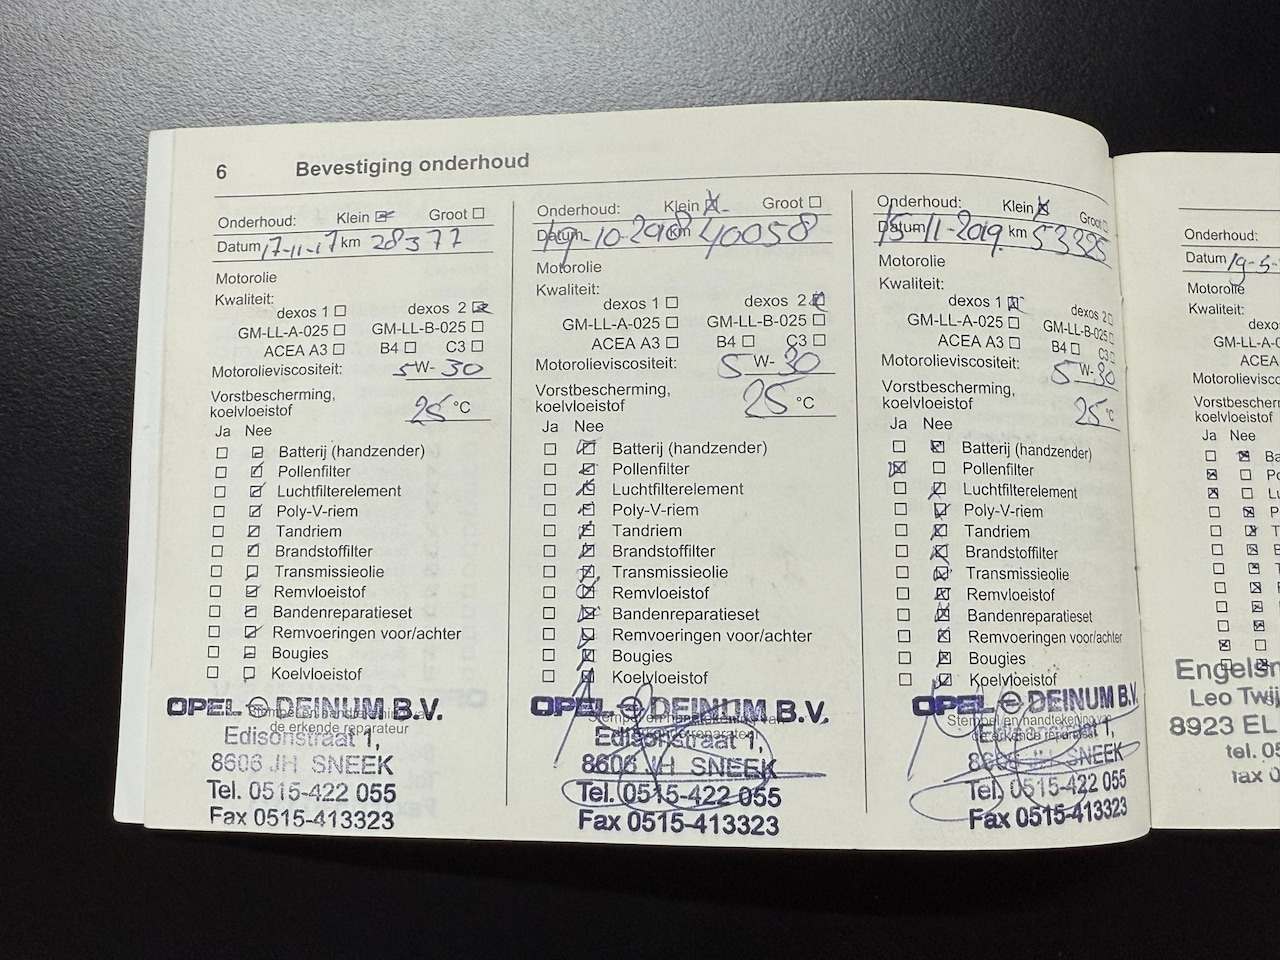 6 Bevestiging onderhoud
Onderhoud: Klein Groot
Datum 17-11-17 km 28377
Motorolie
Kwaliteit:
dexos 1 dexos 2
GM-LL-A-025 GM-LL-B-025
ACEA A3 B4 C3
Motorolieviscositeit: 5 W- 30
Vorstbescherming,
koelvloeistof 25 °C
Ja Nee
Batterij (handzender)
Pollenfilter
Luchtfilterelement
Poly-V-riem
Tandriem
Brandstoffilter
Transmissieolie
Remvloeistof
Bandenreparatieset
Remvoeringen voor/achter
Bougies
Koelvloeistof
OPEL DEINUM B.V.
Stempel en handtekening van
de erkende reparateur
Edisonstraat 1,
8606 JH SNEEK
Tel. 0515-422 055
Fax 0515-413323
Onderhoud: Klein Groot
Datum 19-10-2018 km 40058
Motorolie
Kwaliteit:
dexos 1 dexos 2
GM-LL-A-025 GM-LL-B-025
ACEA A3 B4 C3
Motorolieviscositeit: 5 W- 30
Vorstbescherming,
koelvloeistof 25 °C
Ja Nee
Batterij (handzender)
Pollenfilter
Luchtfilterelement
Poly-V-riem
Tandriem
Brandstoffilter
Transmissieolie
Remvloeistof
Bandenreparatieset
Remvoeringen voor/achter
Bougies
Koelvloeistof
OPEL DEINUM B.V.
Stempel en handtekening van
de erkende reparateur
Edisonstraat 1,
8606 JH SNEEK
Tel. 0515-422 055
Fax 0515-413323
Onderhoud: Klein Groot
Datum 15-11-2019 km 53325
Motorolie
Kwaliteit:
dexos 1 dexos 2
GM-LL-A-025 GM-LL-B-025
ACEA A3 B4 C3
Motorolieviscositeit: 5 W- 30
Vorstbescherming,
koelvloeistof 25 °C
Ja Nee
Batterij (handzender)
Pollenfilter
Luchtfilterelement
Poly-V-riem
Tandriem
Brandstoffilter
Transmissieolie
Remvloeistof
Bandenreparatieset
Remvoeringen voor/achter
Bougies
Koelvloeistof
OPEL DEINUM B.V.
Stempel en handtekening van
de erkende reparateur
Edisonstraat 1,
8606 JH SNEEK
Tel. 0515-422 055
Fax 0515-413323
Onderhoud:
Datum 19-5-
Motorolie
Kwaliteit:
dexo
GM-LL-A-0
ACEA
Motorolievisco
Vorstbescher
koelvloeistof
Ja Nee
Ba
Po
Lu
P
T
B
T
Engelsm
Leo Twij
8923 EL
tel. 05
fax 0